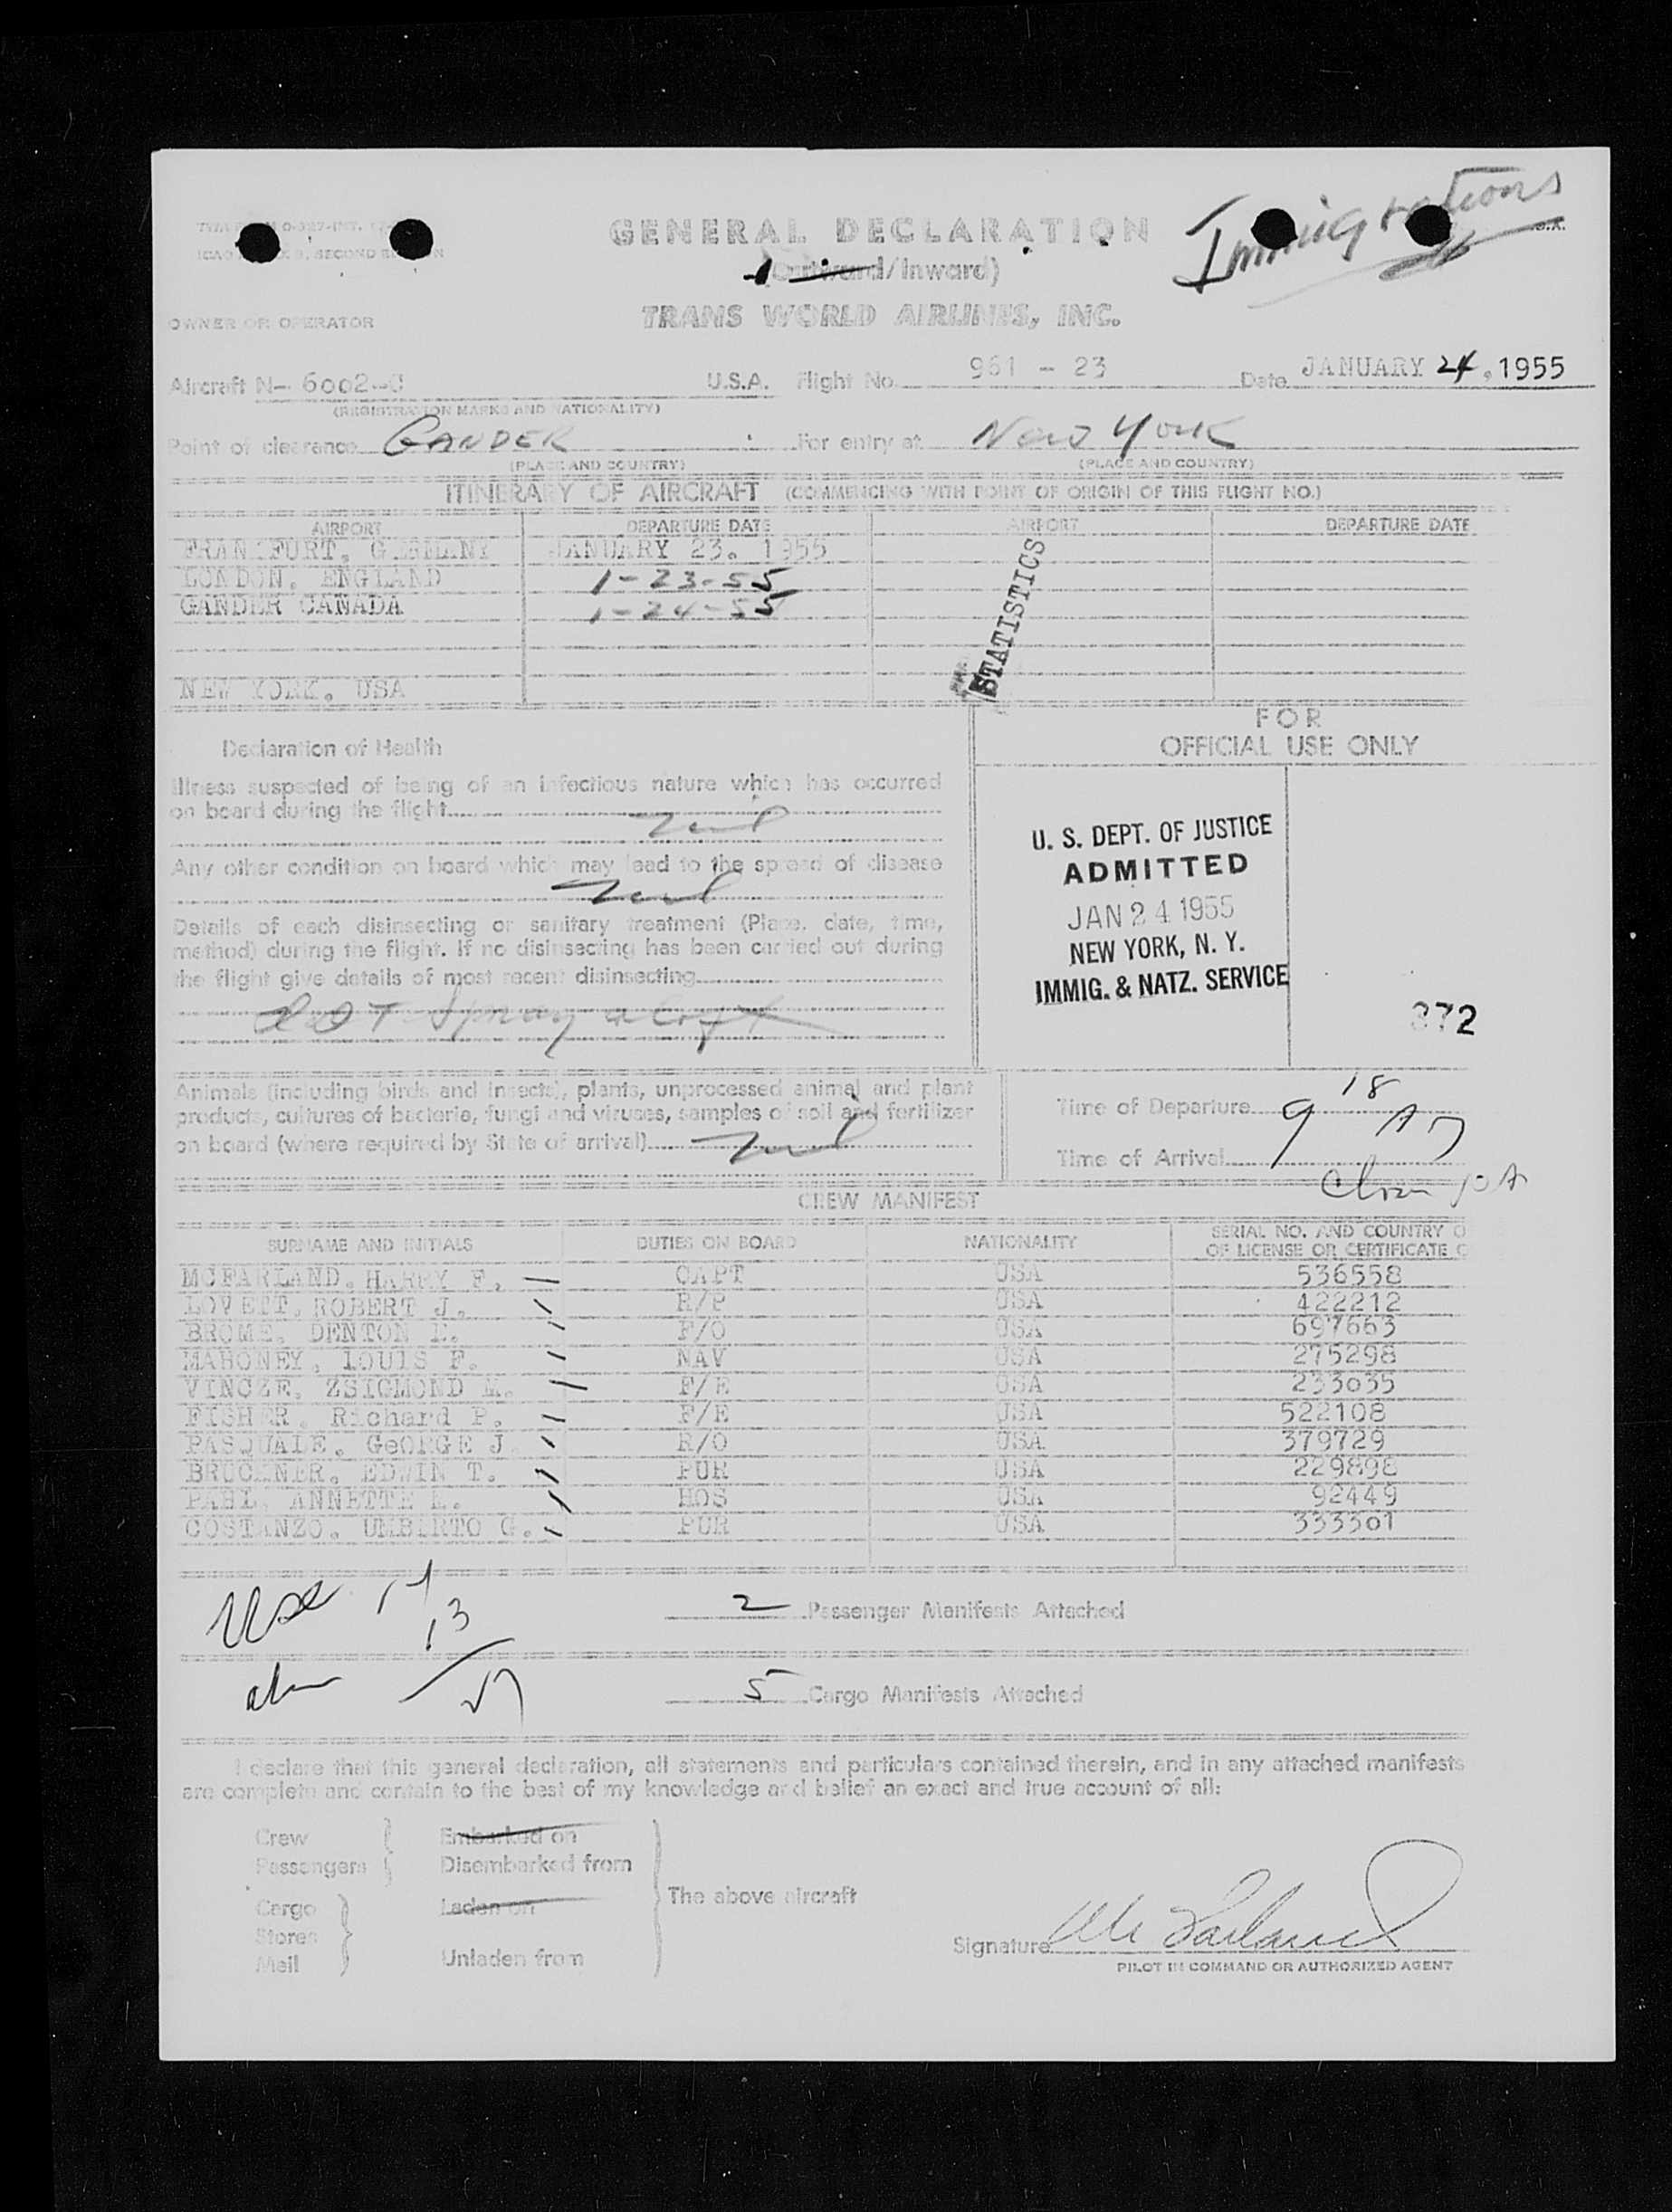 Immigrations
GENERAL DECLARATION
(Outward/Inward)
OWNER OR OPERATOR
TRANS WORLD AIRLINES, INC.
Aircraft N- 6002-C U.S.A. Flight No. 961 - 23 Date JANUARY 24, 1955
(REGISTRATION MARKS AND NATIONALITY)
Point of clearance GANDER For entry at New York
(PLACE AND COUNTRY) (PLACE AND COUNTRY)
ITINERARY OF AIRCRAFT (COMMENCING WITH POINT OF ORIGIN OF THIS FLIGHT NO.)
AIRPORT DEPARTURE DATE AIRPORT DEPARTURE DATE
FRANKFURT, GERMANY JANUARY 23. 1955
LONDON. ENGLAND 1-23-55
GANDER CANADA 1-24-55
STATISTICS
NEW YORK. USA
FOR
OFFICIAL USE ONLY
Declaration of Health
Illness suspected of being of an infectious nature which has occurred
on board during the flight
nil
Any other condition on board which may lead to the spread of disease
nil
Details of each disinsecting or sanitary treatment (Place, date, time,
method) during the flight. If no disinsecting has been carried out during
the flight give details of most recent disinsecting
Spray
U. S. DEPT. OF JUSTICE
ADMITTED
JAN 24 1955
NEW YORK, N. Y.
IMMIG. & NATZ. SERVICE
372
Animals (including birds and insects), plants, unprocessed animal and plant
products, cultures of bacteria, fungi and viruses, samples of soil and fertilizer
on board (where required by State of arrival) nil
Time of Departure
9 18 A
Time of Arrival
CREW MANIFEST
SURNAME AND INITIALS DUTIES ON BOARD NATIONALITY SERIAL NO. AND COUNTRY O
OF LICENSE OR CERTIFICATE
MCFARLAND. HARRY F. CAPT USA 536558
LOVETT. ROBERT J. R/P USA 422212
BROME. DENTON E. F/O USA 697663
MAHONEY, LOUIS F. NAV USA 275298
VINCZE. ZSIGMOND M. F/E USA 233035
FISHER. Richard P. F/E USA 522108
PASQUALE. GeORGE J R/O USA 379729
BRUCKNER. EDWIN T. PUR USA 229898
PAHL ANNETTE L. HOS USA 92449
COSTANZO. UMBERTO G. PUR USA 333301
2 Passenger Manifests Attached
13
5 Cargo Manifests Attached
I declare that this general declaration, all statements and particulars contained therein, and in any attached manifests
are complete and contain to the best of my knowledge and belief an exact and true account of all:
Crew Embarked on
Passengers Disembarked from
The above aircraft
Cargo Laden on
Stores
Mail Unladen from
Signature McFarland
PILOT IN COMMAND OR AUTHORIZED AGENT